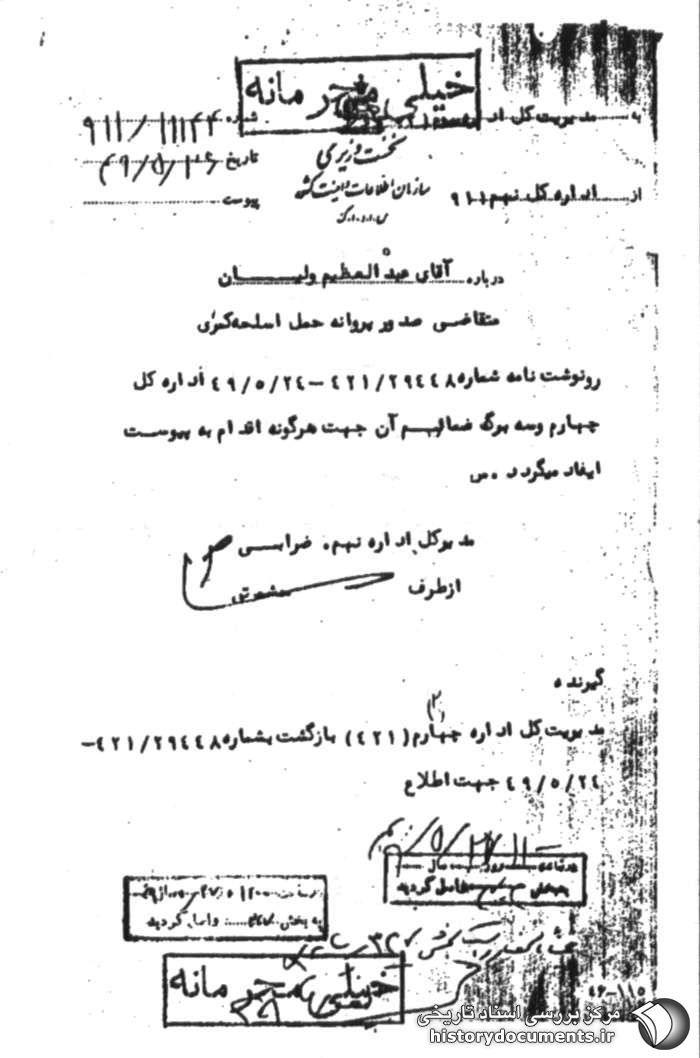 خیلی محرمانه
به مدیریت کل اداره
شماره ۹۱۱/۱۱۱۴۴
نخست وزیری
تاریخ ۴۹/۵/۲۶
سازمان اطلاعات و امنیت کشور
از اداره کل نهم ۹۱۱
س.ا.و.ا.ک
پیوست
درباره آقای عبدالعظیم ولیان
متقاضی صدور پروانه حمل اسلحه کمری
رونوشت نامه شماره ۴۲۱/۲۹۴۴۸ – ۴۹/۵/۲۴ اداره کل
چهارم وسه برگ ضمائم آن جهت هرگونه اقدام به پیوست
ایفاد میگردد .س
مدیرکل اداره نهم. ضرابی
ازطرف
گیرنده
مدیریت کل اداره چهارم (۴۲۱) بازگشت بشماره ۴۲۱/۲۹۴۴۸–
۴۹/۵/۲۴ جهت اطلاع
روز سال
واصل گردید
به بخش ۳۲۷ واصل گردید
بخش ۳۲۷
خیلی محرمانه
۴۶-۱۱۵
مرکز بررسی اسناد تاریخی
historydocuments.ir